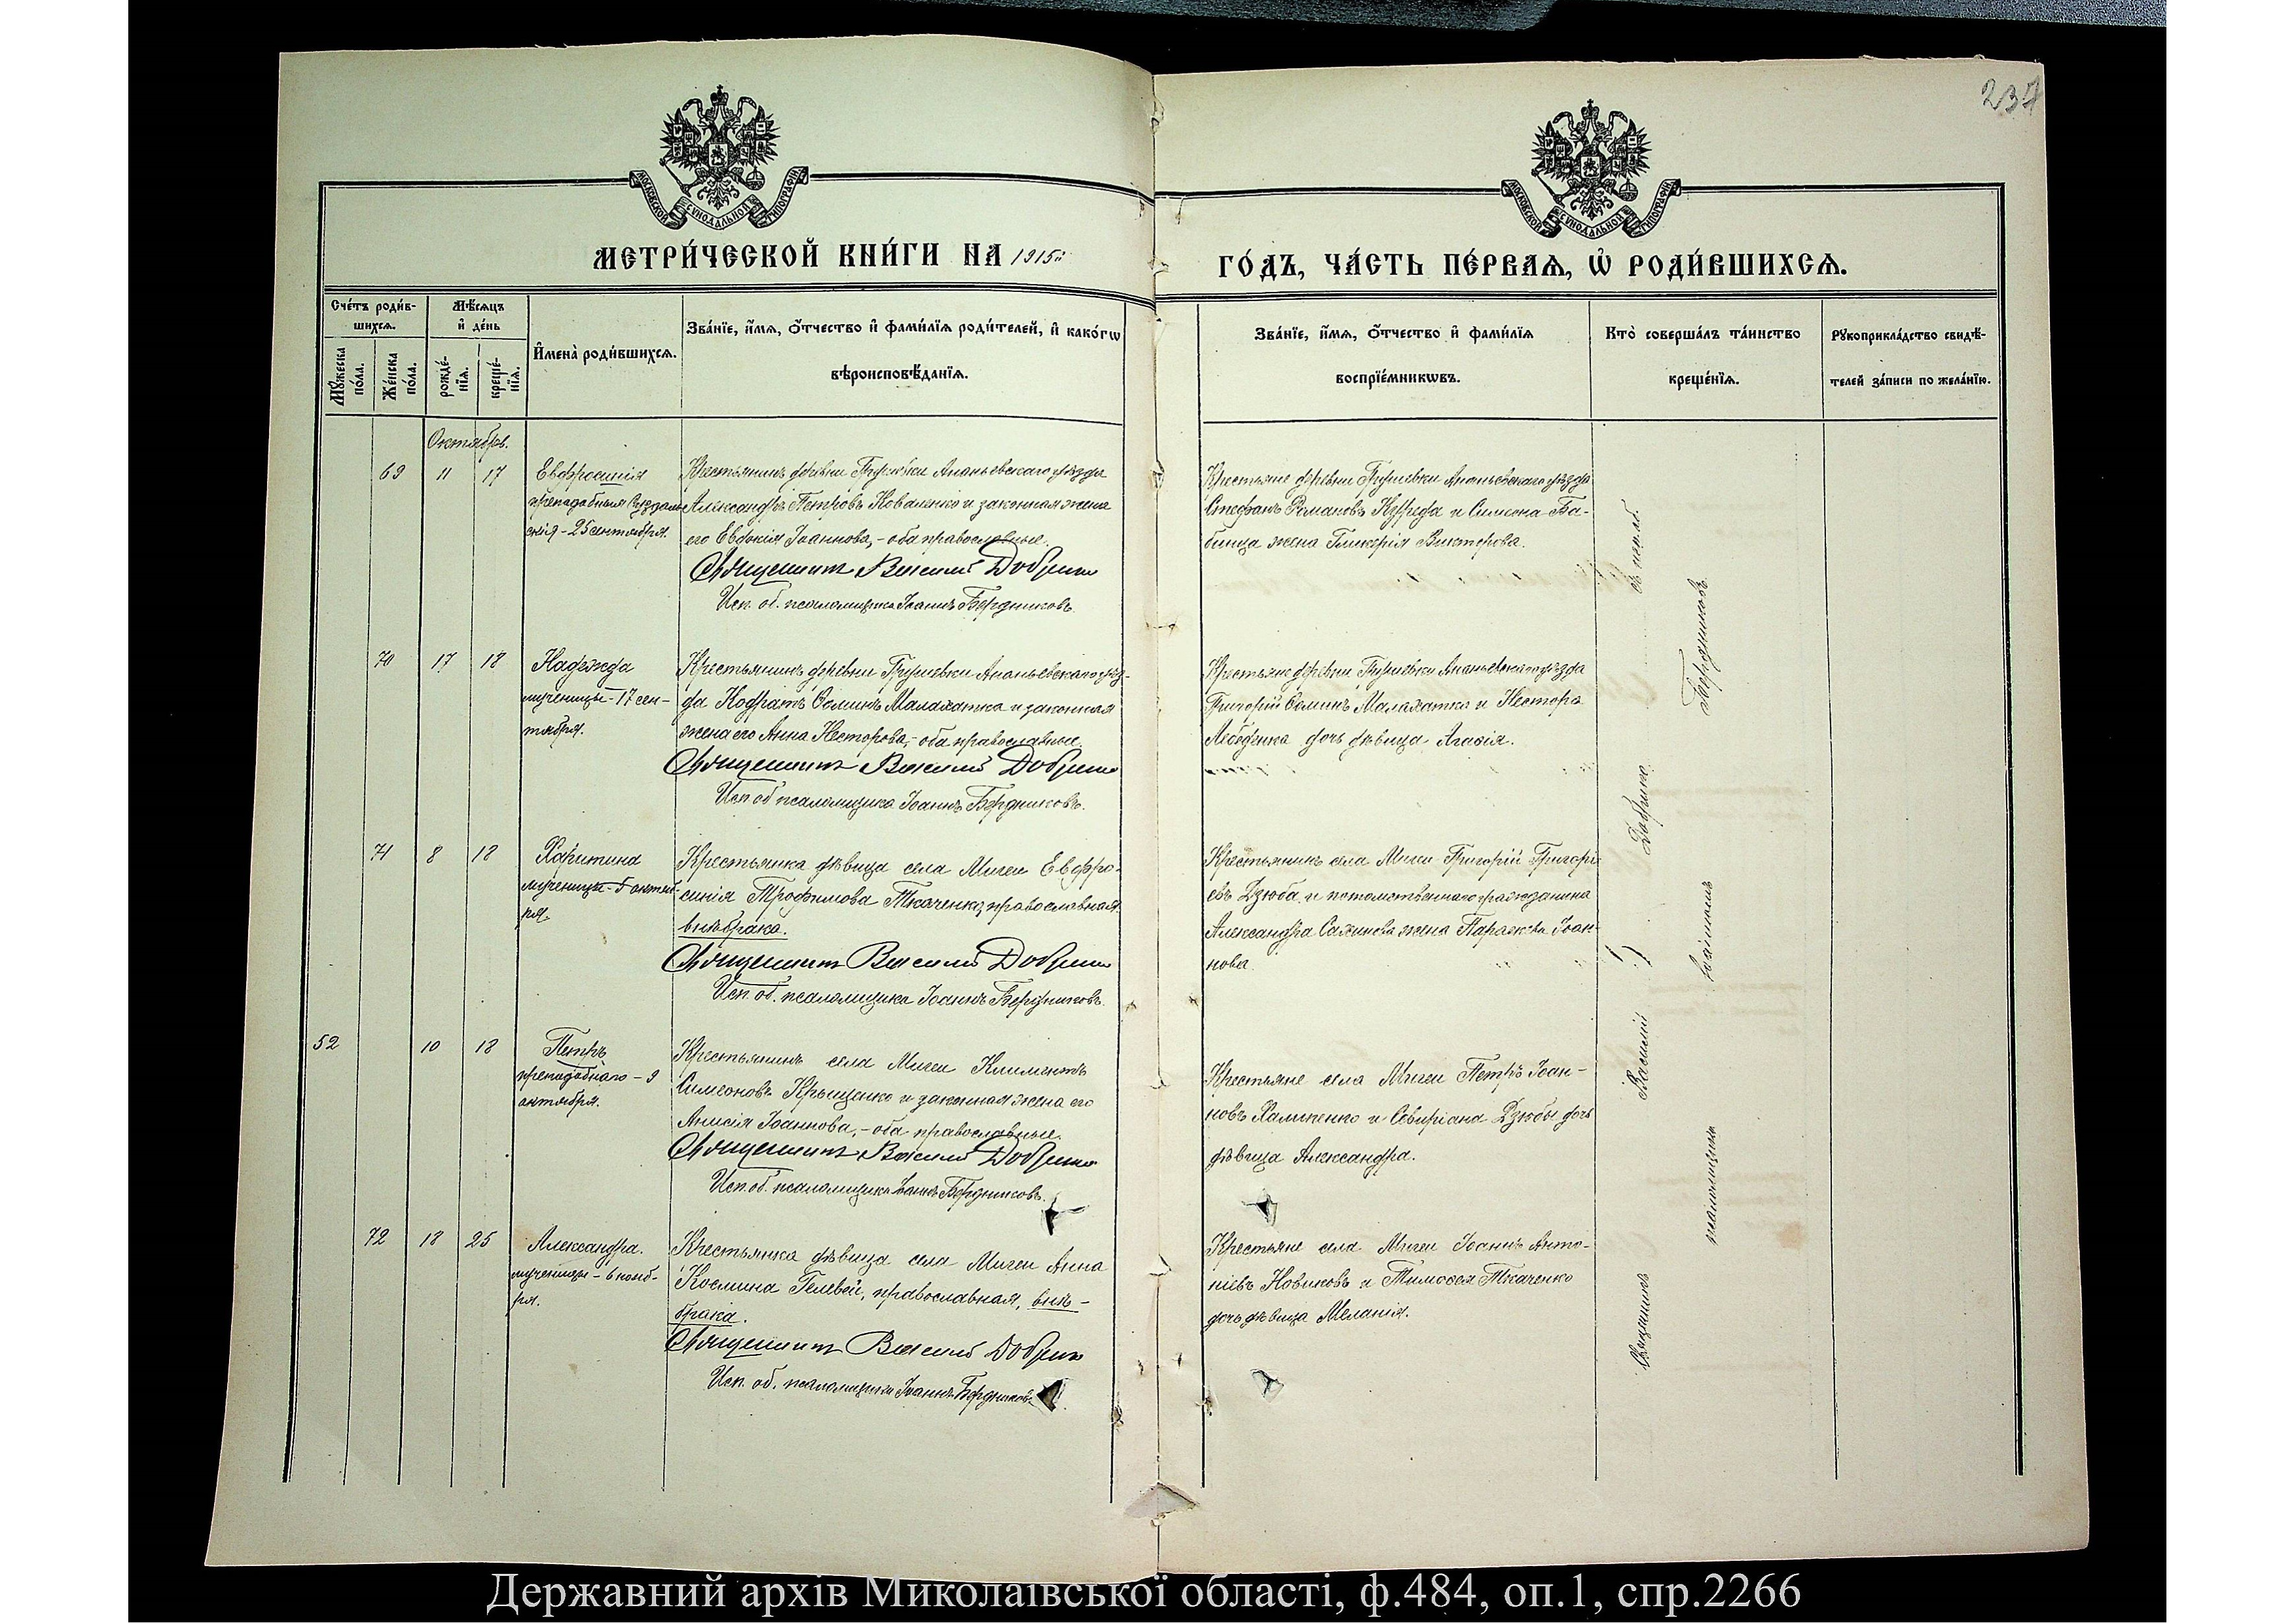 237
МОСКОВСКОЙ СѴНОДАЛЬНОЙ ТИПОГРАФІИ
МОСКОВСКОЙ СѴНОДАЛЬНОЙ ТИПОГРАФІИ
МЕТРИ́ЧЕСКОЙ КНИ́ГИ НА 1915й
ГО́ДЪ, ЧА́СТЬ ПЕ́РВАѦ, Ѡ҆ РОДИ́ВШИХСѦ.
Сче́тъ роди́в-
шихсѧ.
Мꙋ́жеска по́ла.
Же́нска по́ла.
Мѣ́сѧцъ
и҆ де́нь
рожде́-
нїѧ.
креще́-
нїѧ.
И҆мена̀ роди́вшихсѧ.
Зва́нїе, и҆́мѧ, ѻ҆́тчество и҆ фами́лїѧ роди́телей, и҆ како́гѡ
вѣроисповѣ́данїѧ.
Зва́нїе, и҆́мѧ, ѻ҆́тчество и҆ фами́лїѧ
воспрїе́мникѡвъ.
Кто̀ соверша́лъ та́инство
креще́нїѧ.
Рꙋкоприкла́дство свидѣ́-
телей за́писи по жела́нїю.
Октябрь.
69 11 17
Евфросинія
преподобныя Суздаль
скія - 25 сентября.
Крестьянинъ деревни Грушевки Ананьевскаго уѣзда
Александръ Петровъ Коваленко и законная жена
его Евдокія Іоаннова, - оба православные.
Священникъ Василій Добрино
Исп. об. псаломщика Іоаннъ Бердниковъ.
Крестьяне деревни Грушевки Ананьевскаго уѣзда
Стефанъ Романовъ и Симеона Ба-
бинца жена Гликерія Викторова.
70 17 18
Надежда
мученицы - 17 сен-
тября.
Крестьянинъ деревни Грушевки Ананьевскаго уѣз-
да Кодратъ Ѳоминъ Малахатка и законная
жена его Анна Несторова, - оба православные.
Священникъ Василій Добрино
Исп об псаломщика Іоаннъ Бердниковъ.
Крестьяне деревни Грушевки Ананьевскаго уѣзда
Григорій Ѳоминъ Малахатка и Нестора
Лебеденка дочь дѣвица Агаѳія.
71 8 18
Харитина
мученицы - 5 октяб-
ря.
Крестьянка дѣвица села Мигеи Евфро-
синія Трофимова Ткаченко, православная
внѣ брака.
Священникъ Василій Добрино
Исп. об. псаломщика Іоаннъ Бердниковъ
Крестьянинъ села Мигеи Григорій Григорі-
евъ Дзюба и потомственнаго гражданина
Александра жена Параскева Іоан-
нова.
52 10 18
Петръ
преподобнаго - 9
октября.
Крестьянинъ села Мигеи Климентъ
Симеоновъ Крыщенко и законная жена его
Анисія Іоаннова, - оба православные.
Священникъ Василій Добрино
Исп. об. псаломщика Іоаннъ Бердниковъ.
Крестьяне села Мигеи Петръ Іоан-
новъ и Севиріана Дзюбы дочь
дѣвица Александра.
72 18 25
Александра.
мученицы - 6 нояб-
ря.
Крестьянка дѣвица села Мигеи Анна
Космина Гелевей, православная, внѣ-
брака.
Священникъ Василій Добрино
Исп. об. псаломщика Іоаннъ Бердниковъ.
Крестьяне села Мигеи Іоаннъ Анто-
ніевъ Новиковъ и Тимоѳея Ткаченко
дочь дѣвица Меланія.
Священникъ Василій Добрино съ
псаломщикомъ Іоанномъ Бердниковъ
Державний архів Миколаївської області, ф.484, оп.1, спр.2266